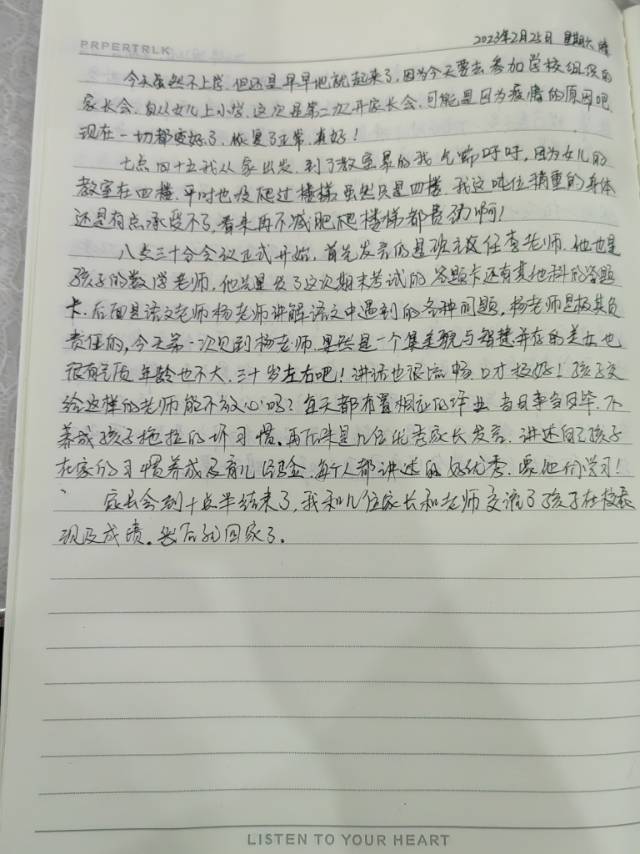 PRPERTRLK
2023年2月25日 星期六 晴
今天虽然不上学,但还是早早地就起来了,因为今天要去参加学校组织的
家长会,自从女儿上小学,这次是第二次开家长会,可能是因为疫情的原因吧,
现在一切都变好了,恢复了正常,真好!
七点四十五我从家出发,到了教室累的我气喘呼呼,因为女儿的
教室在四楼,平时也没爬过楼梯,虽然只是四楼,我这吨位稍重的身体
还是有点承受不了,看来再不减肥爬楼梯都费劲啊!
八点三十分会议正式开始,首先发言的是班主任李老师,他也是
孩子的数学老师,他总是发了这次期末考试的答题卡还有其他科的答题
卡,后面是语文老师杨老师讲解语文中遇到的各种问题,杨老师是极其负
责任的,今天第一次见到杨老师,果然是一个集美貌与智慧并存的美女也
很有气质,年龄也不大,三十岁左右吧!讲话也很流畅,口才极好!孩子交
给这样的老师能不放心吗?每天都布置相应的作业,当日事当日毕,不
养成孩子拖拉的坏习惯,再后来是几位优秀家长发言,讲述自己孩子
在家的习惯养成及育儿经验,每个人都讲述的好优秀,要他们学习!
家长会到十点半结束了,我和几位家长和老师交流了孩子在校表
现及成绩。然后就回家了。
LISTEN TO YOUR HEART